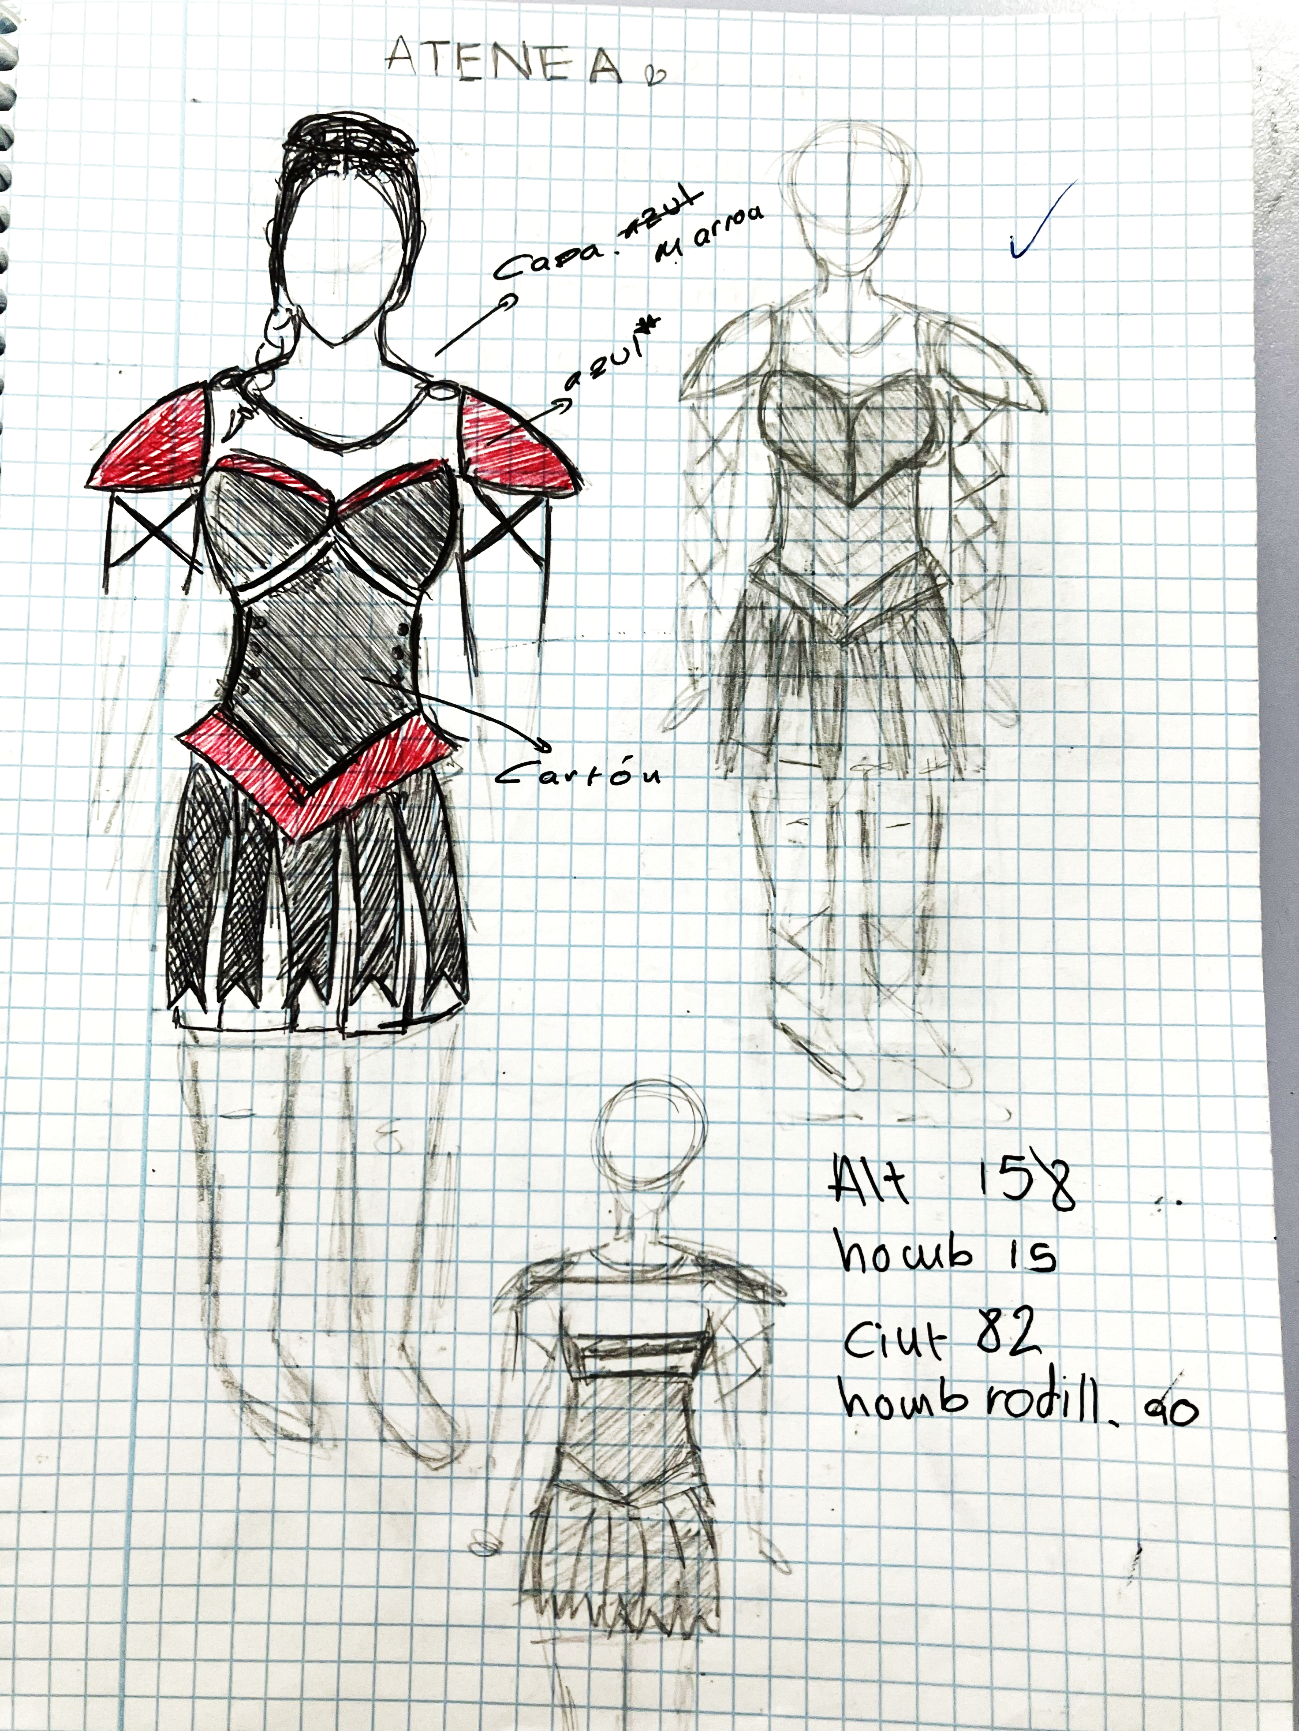 ATENEA
Capa. azul
Marroa
azul*
Cartón
Alt 158
homb 15
Ciut 82
homb rodill. 90